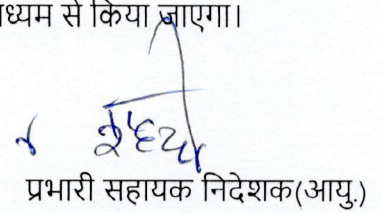 ध्यम से किया जाएगा।
प्रभारी सहायक निदेशक(आयु.)